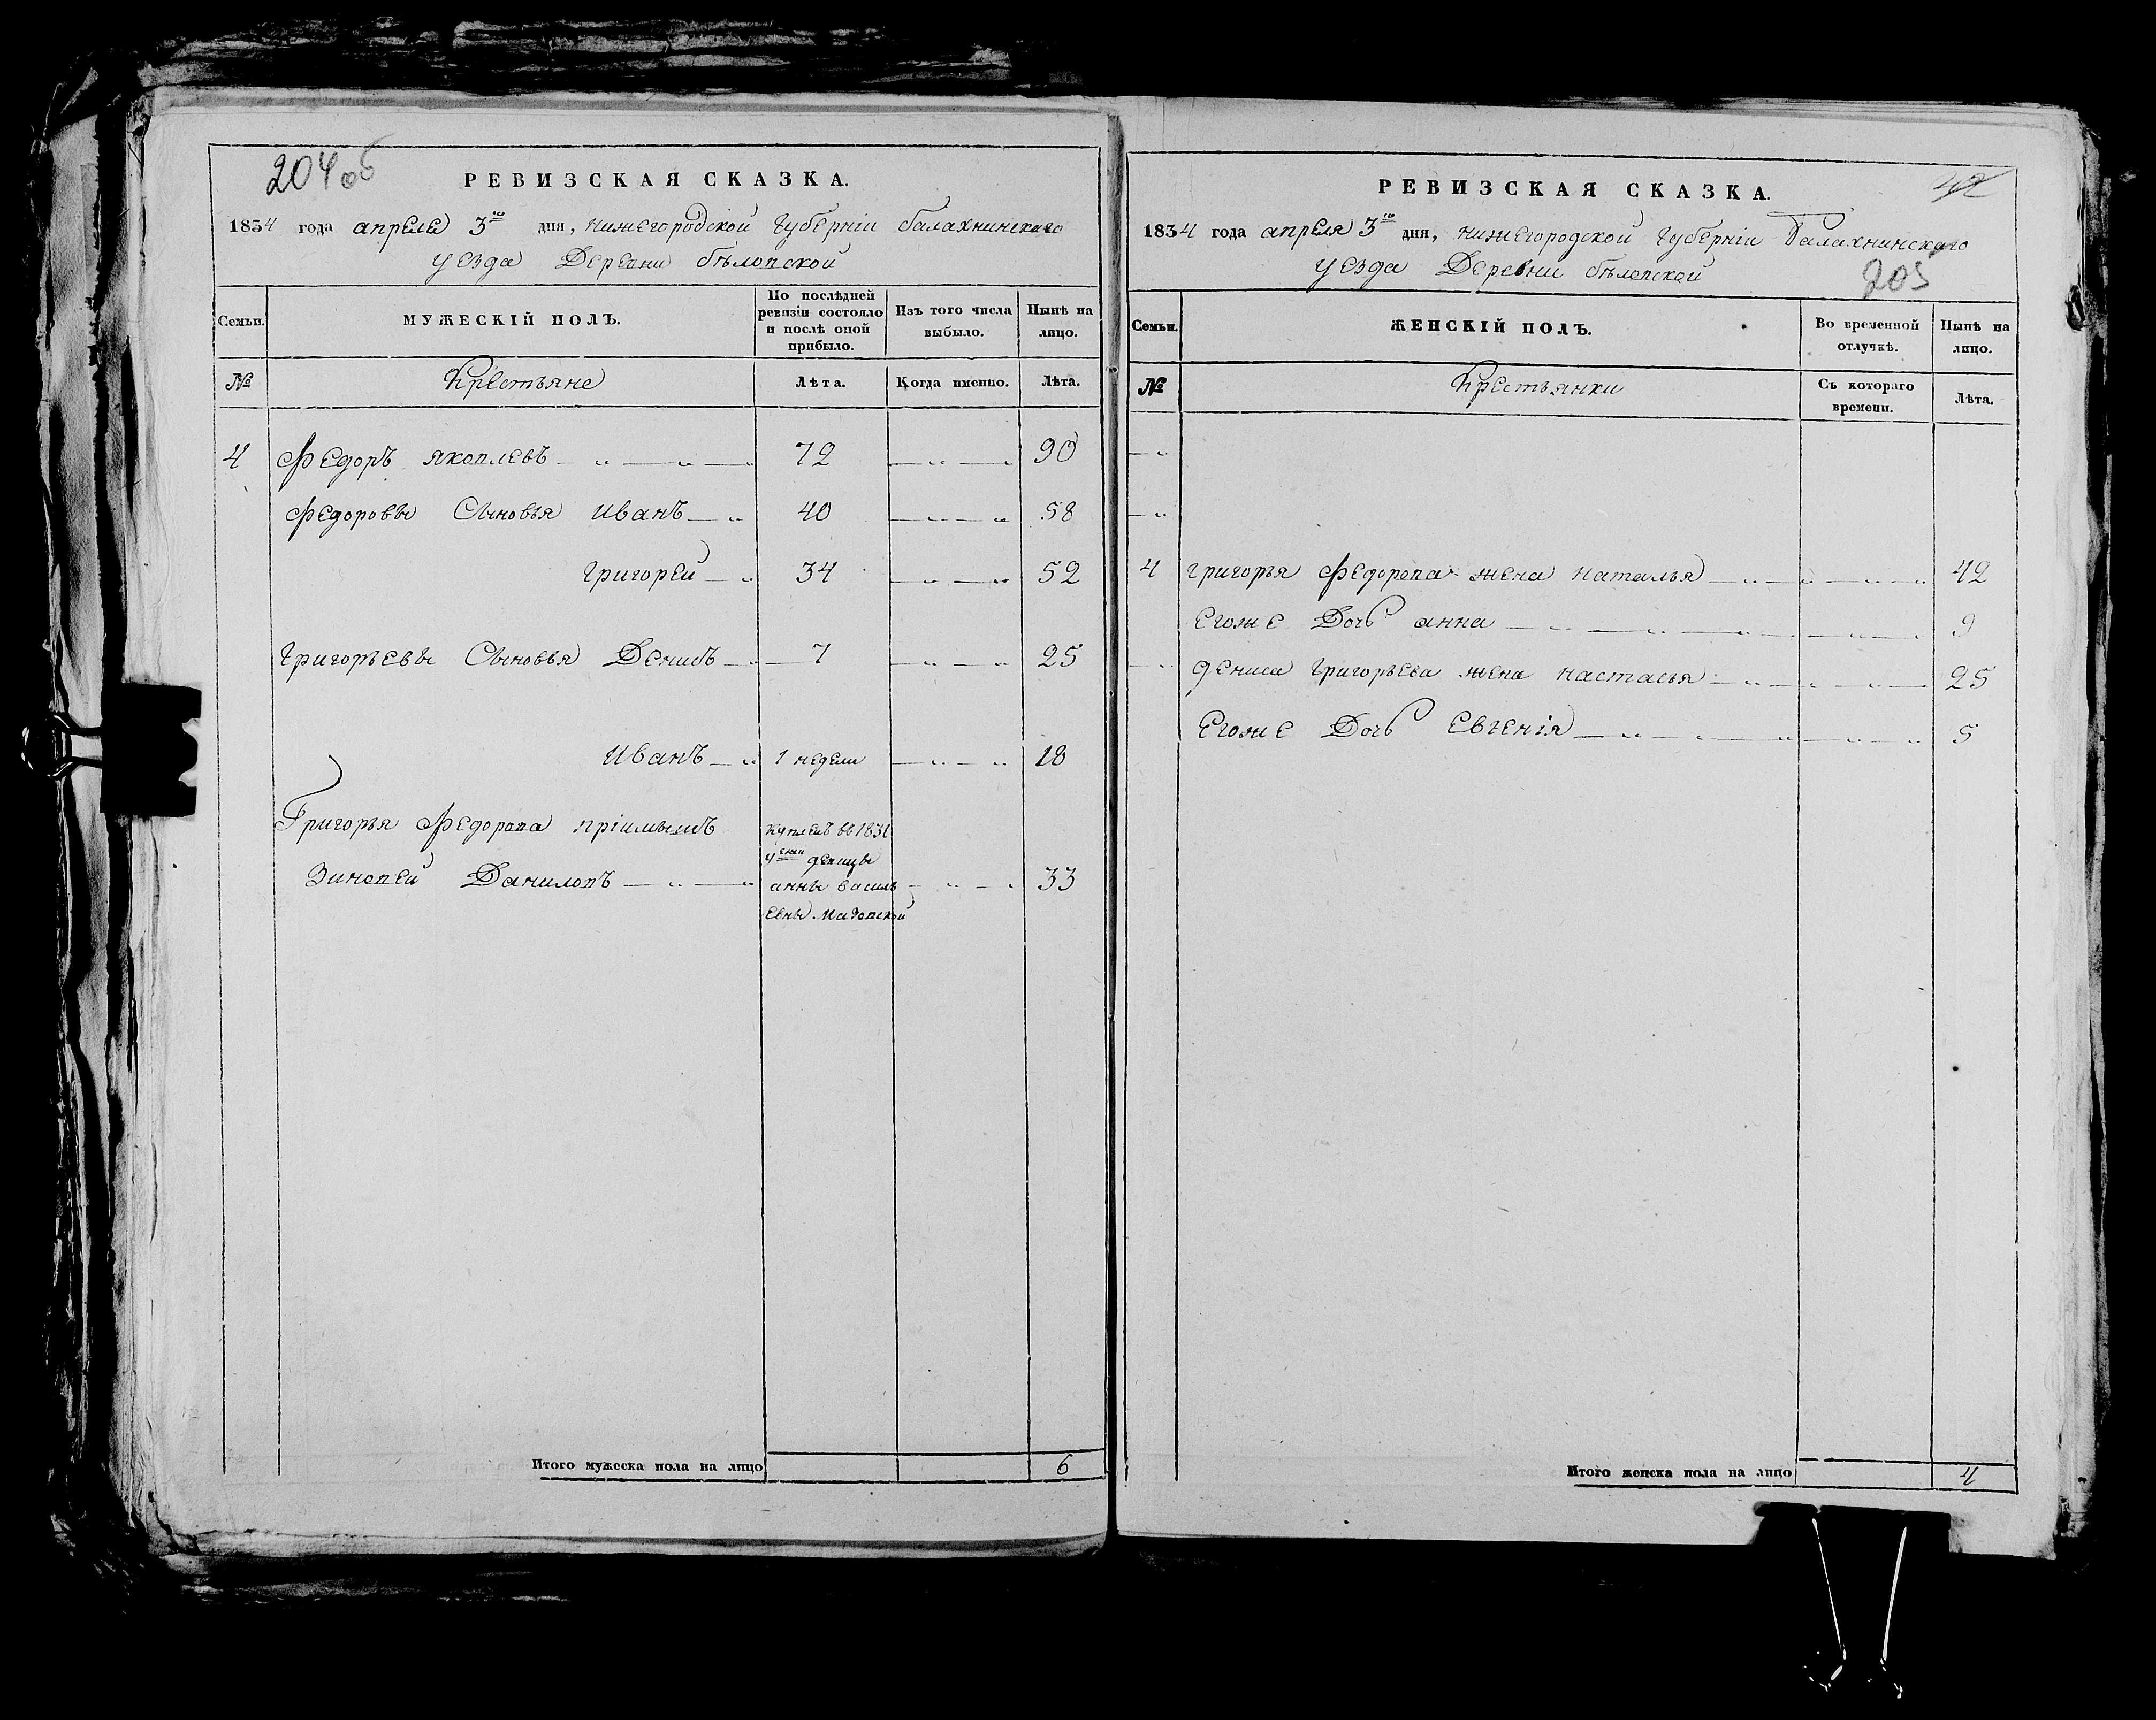 204 об
РЕВИЗСКАЯ СКАЗКА.
1834 года апреля 3го дня, нижегородской губерніи балахнинскаго
уезда Деревни бѣловской
Семьи. МУЖЕСКІЙ ПОЛЪ. По послѣдней ревизіи состояло и послѣ оной прибыло. Изъ того числа выбыло. Нынѣ на лицо.
№ Крестьяне Лѣта. Когда именно. Лѣта.
4 Федоръ яковлевъ 72 90
Федоровы Сыновья иванъ 40 58
григорей 34 52
григорьевы Сыновья Денисъ 7 25
иванъ 1 недели 18
Григорья Федорова пріимышъ купленъ въ 1831
у
девицы
Зиновей Даниловъ анны василь 33
евны
Итого мужеска пола на лицо 6
42
РЕВИЗСКАЯ СКАЗКА.
1834 года апреля 3го дня, нижегородской губерніи Балахнинскаго
уезда Деревни бѣловской
205
Семьи. ЖЕНСКІЙ ПОЛЪ. Во временной отлучкѣ. Нынѣ на лицо.
№ Крестьянки Съ котораго времени. Лѣта.
4 григорья Федорова жена наталья 42
егоже Дочь анна 9
дениса григорьева жена настасья 25
егоже Дочь евгенія 5
Итого женска пола на лицо 4